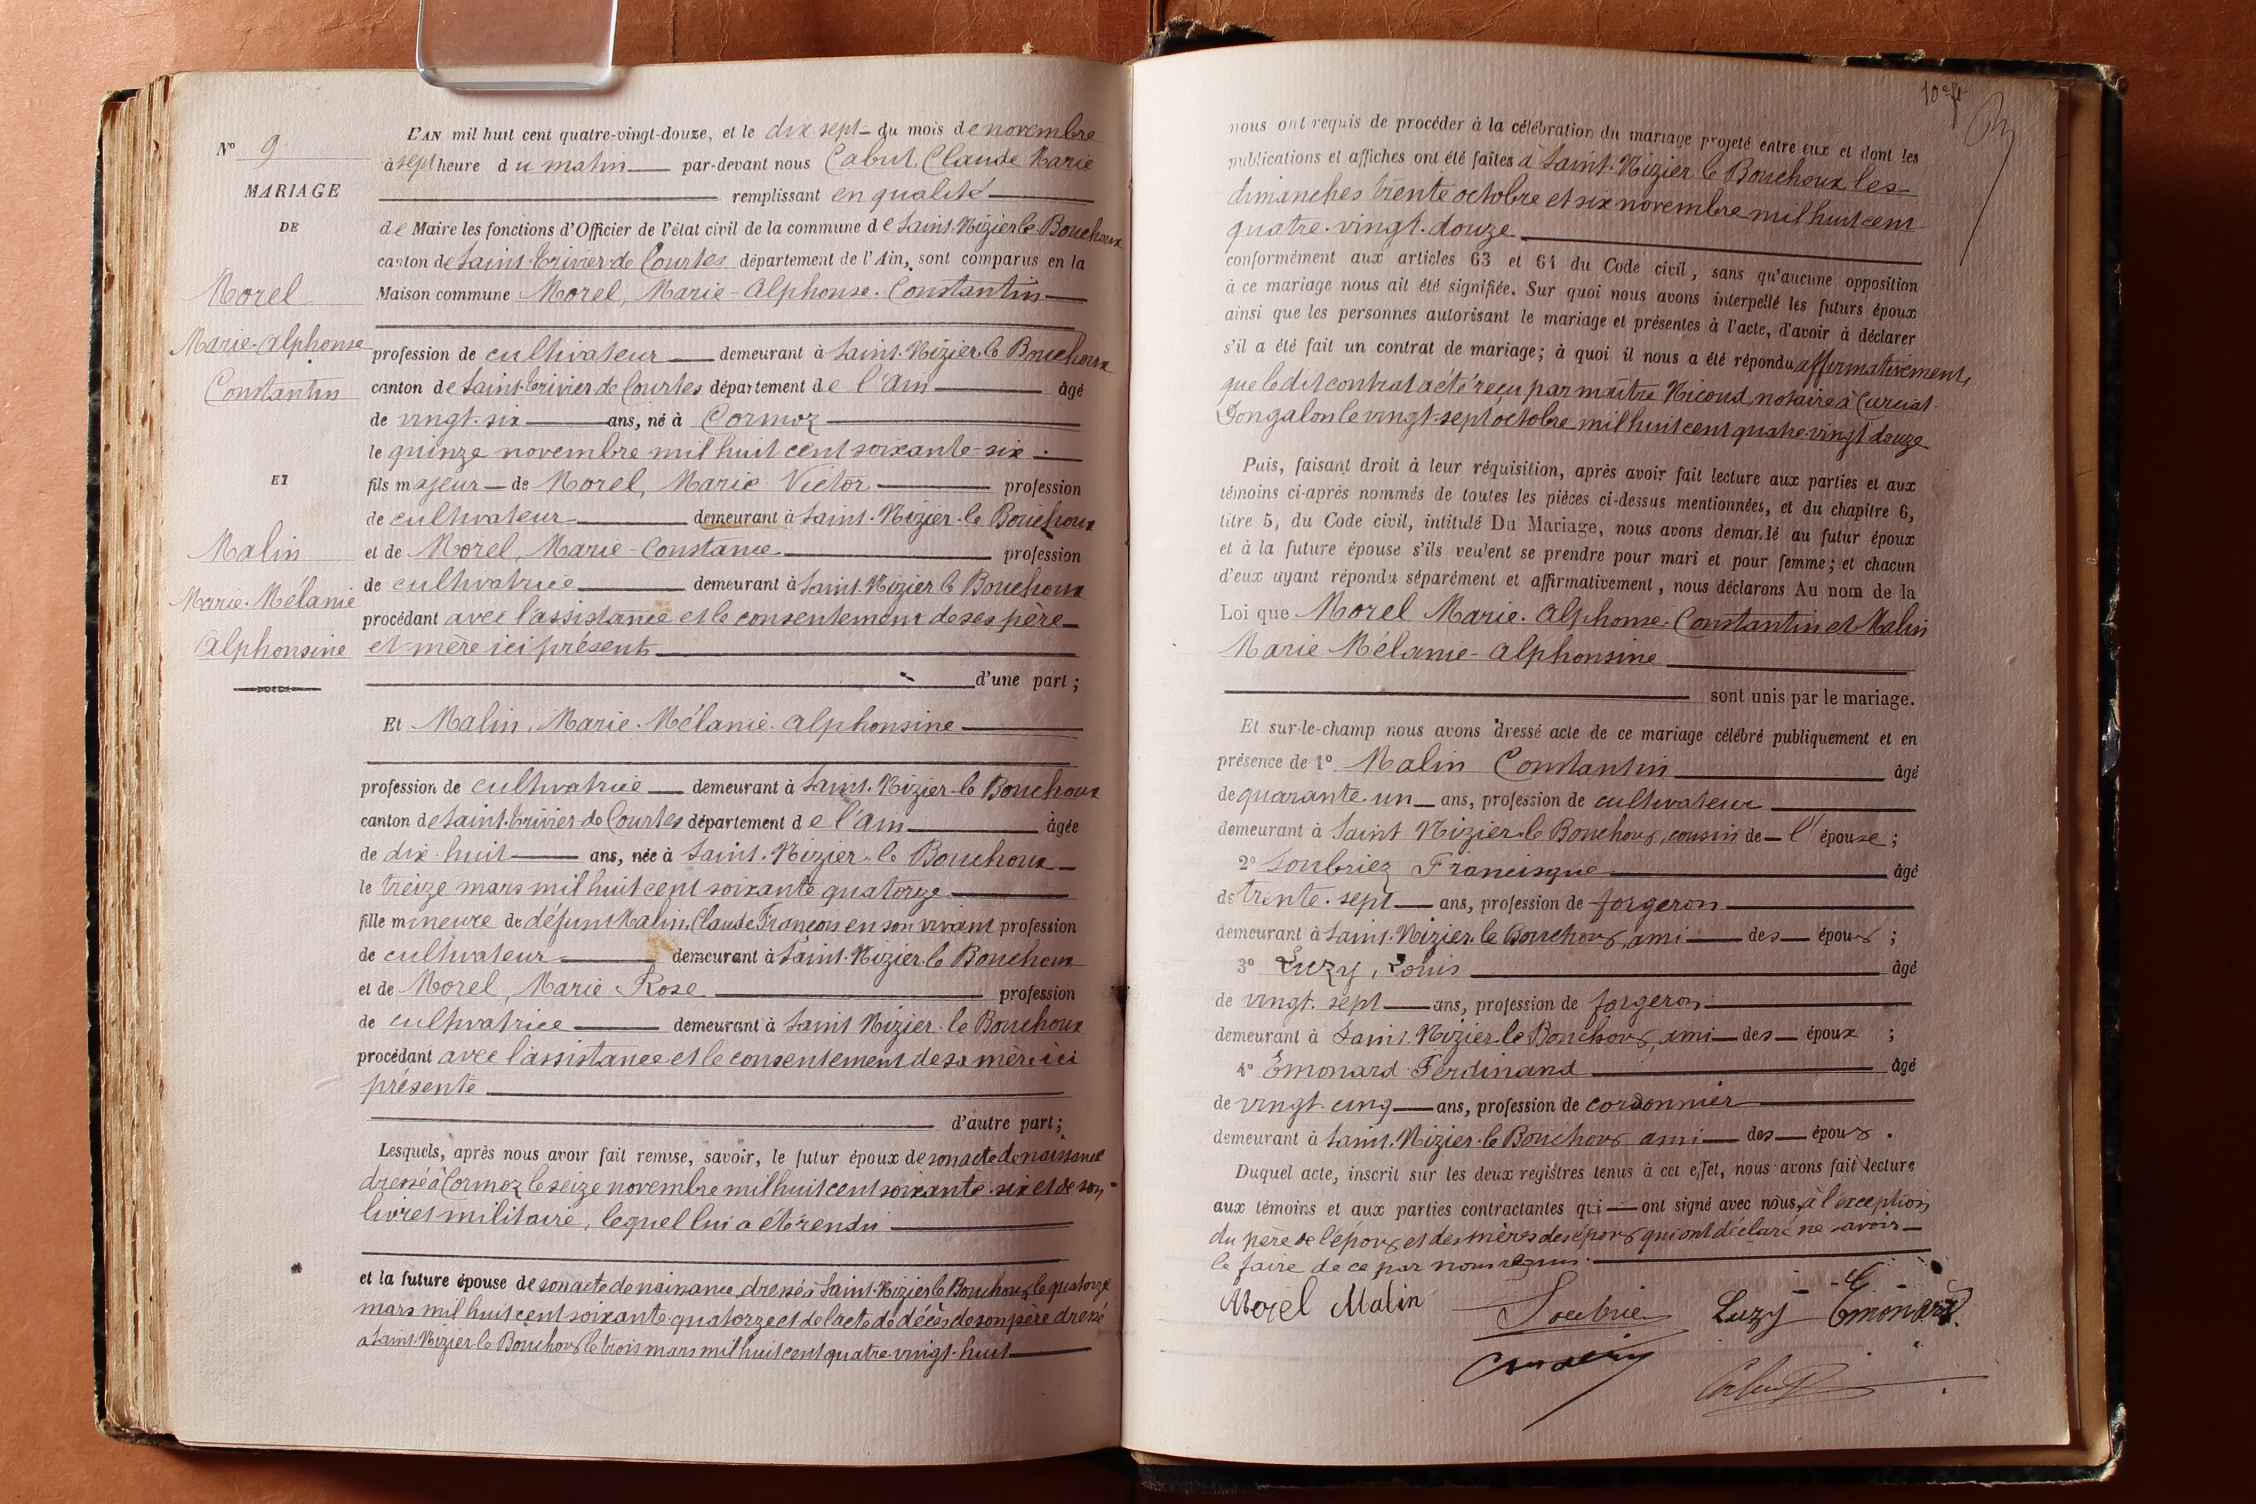 L'AN mil huit cent quatre-vingt-douze, et le dix sept du mois de novembre
N° 9
à sept heure du matin par-devant nous Cabut, Claude Marie
MARIAGE
remplissant en qualité
DE
de Maire les fonctions d'Officier de l'état civil de la commune de Saint-Nizier-le-Bouchoux
canton de Saint-Trivier-de Courtes département de l'Ain, sont comparus en la
Morel
Maison commune Morel, Marie-Alphonse-Constantin
Marie-Alphonse
profession de cultivateur demeurant à Saint-Nizier-le Bouchoux
Constantin
canton de Saint-Trivier de Courtes département de l'Ain âgé
de vingt-six ans, né à Cormoz
le quinze novembre mil huit cent soixante-six
ET
fils majeur de Morel, Marie Victor profession
de cultivateur demeurant à Saint-Nizier-le Bouchoux
Malin
et de Morel, Marie-Constance profession
de cultivatrice demeurant à Saint-Nizier le Bouchoux
Marie-Mélanie
procédant avec l'assistance et le consentement de ses père
Alphonsine
et mère ici présents
d'une part ;
Et Malin, Marie-Mélanie-Alphonsine
profession de cultivatrice demeurant à Saint-Nizier-le Bouchoux
canton de Saint-Trivier de Courtes département de l'Ain âgée
de dix-huit ans, née à Saint-Nizier-le Bouchoux
le treize mars mil huit cent soixante quatorze
fille mineure de défunt Malin, Claude François en son vivant profession
de cultivateur demeurant à Saint-Nizier-le Bouchoux
et de Morel, Marie-Rose profession
de cultivatrice demeurant à Saint Nizier-le Bouchoux
procédant avec l'assistance et le consentement de sa mère ici
présente
d'autre part ;
Lesquels, après nous avoir fait remise, savoir, le futur époux de son acte de naissance
dressé à Cormoz le seize novembre mil huit cent soixante-six et de son
livret militaire, lequel lui a été rendu
et la future épouse de son acte de naissance, dressé à Saint-Nizier le Bouchoux le quatorze
mars mil huit cent soixante-quatorze et de l'acte de décès de son père dressé
à Saint-Nizier-le Bouchoux le trois mars mil huit cent quatre-vingt-huit
nous ont requis de procéder à la célébration du mariage projeté entre eux et dont les
publications et affiches ont été faites à Saint-Nizier le Bouchoux les
dimanches trente octobre et six novembre mil huit cent
quatre-vingt-douze
conformément aux articles 63 et 64 du Code civil, sans qu'aucune opposition
à ce mariage nous ait été signifiée. Sur quoi nous avons interpellé les futurs époux
ainsi que les personnes autorisant le mariage et présentes à l'acte, d'avoir à déclarer
s'il a été fait un contrat de mariage ; à quoi il nous a été répondu affirmativement,
que le dit contrat a été reçu par maître Nicoud, notaire à Curciat
Dongalon le vingt-sept octobre mil huit cent quatre-vingt douze
Puis, faisant droit à leur réquisition, après avoir fait lecture aux parties et aux
témoins ci-après nommés de toutes les pièces ci-dessus mentionnées, et du chapitre 6,
titre 5, du Code civil, intitulé Du Mariage, nous avons demandé au futur époux
et à la future épouse s'ils veulent se prendre pour mari et pour femme ; et chacun
d'eux ayant répondu séparément et affirmativement, nous déclarons Au nom de la
Loi que Morel Marie-Alphonse-Constantin et Malin
Marie Mélanie-Alphonsine
sont unis par le mariage.
Et sur-le-champ nous avons dressé acte de ce mariage célébré publiquement et en
présence de 1° Malin Constantin âgé
de quarante-un ans, profession de cultivateur
demeurant à Saint Nizier-le Bouchoux, cousin de l'épouse ;
2° Soubriez Francisque âgé
de trente-sept ans, profession de forgeron
demeurant à Saint-Nizier-le Bouchoux, ami des époux ;
3° Luzy, Louis âgé
de vingt-sept ans, profession de forgeron
demeurant à Saint-Nizier-le Bouchoux, ami des époux ;
4° Emonard Ferdinand âgé
de vingt-cinq ans, profession de cordonnier
demeurant à Saint-Nizier-le Bouchoux ami des époux.
Duquel acte, inscrit sur les deux registres tenus à cet effet, nous avons fait lecture
aux témoins et aux parties contractantes qui ont signé avec nous, à l'exception
du père de l'époux et des mères des époux qui ont déclaré ne savoir
le faire de ce par nous requis.
Morel Malin Soubrie Luzy Emonard